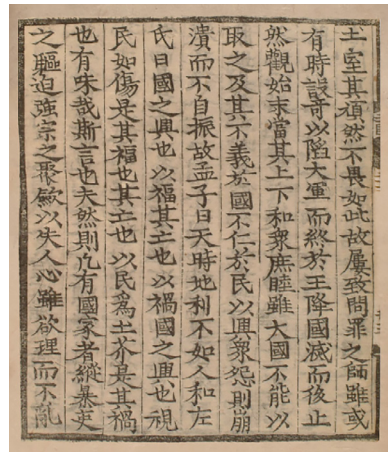 土室其頑然不畏如此故屢致問罪之師雖或
有時設奇以陷大軍而終於王降國滅而後止
然觀始末當其上下和衆庶睦雖大國不能以
取之及其不義於國不仁於民以興衆怨則崩
潰而不自振故孟子曰天時地利不如人和左
氏曰國之興也以福其亡也以禍國之興也視
民如傷是其福也其亡也以民爲土芥是其禍
也有味哉斯言也夫然則凡有國家者縱暴吏
之驅迫強宗之聚歛以失人心雖欲理而不亂